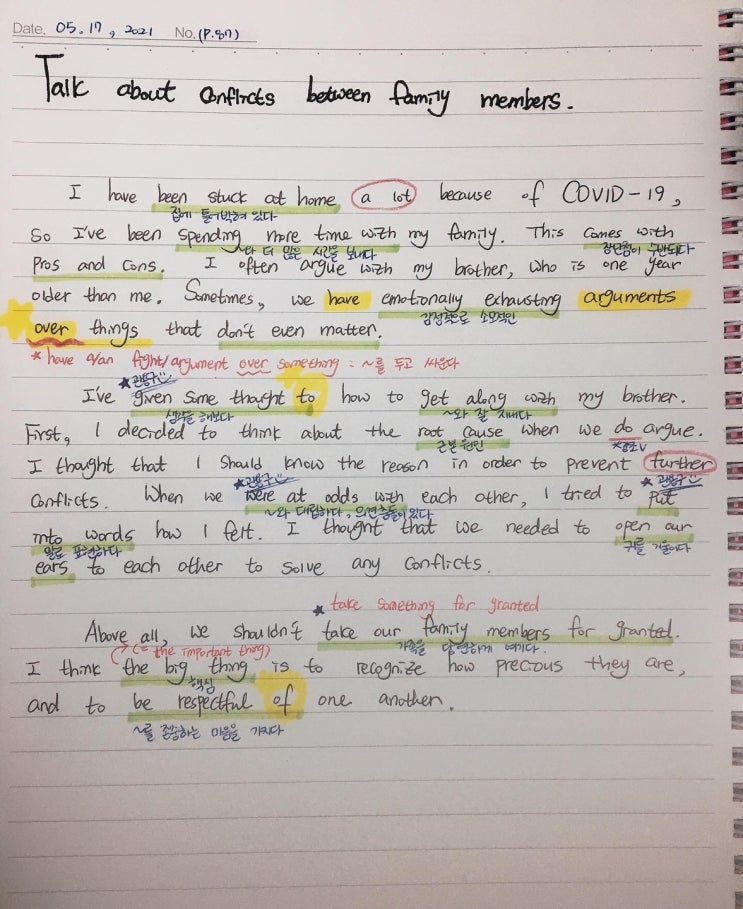 Date. 05. 17, 2021 No. (P.87)
Talk about conflicts between family members.
I have been stuck at home a lot because of COVID-19,
집에 틀어박혀 있다
So I've been spending more time with my family. This comes with
~와 더 많은 시간을 보내다 장단점이 수반되다
Pros and cons. I often argue with my brother, who is one year
older than me. Sometimes, we have emotionally exhausting arguments
감정적으로 소모적인
over things that don't even matter.
* have a/an fight/argument over something : ~를 두고 싸운다
★관용구
I've given some thought to how to get along with my brother.
생각을 해보다 ~와 잘 지내다
First, I decided to think about the root cause when we do argue.
근본 원인 *강조V
I thought that I should know the reason in order to prevent further
★관용구 ★관용구
Conflicts. When we were at odds with each other, I tried to put
~와 대립하다, 의견충돌이 있다
into words how I felt. I thought that we needed to open our
말로 표현하다 귀를 기울이다
ears to each other to solve any conflicts.
★ take something for granted
Above all, we shouldn't take our family members for granted.
(= the important thing) 가족을 당연하게 여기다.
I think the big thing is to recognize how precious they are,
핵심
and to be respectful of one another.
~를 존중하는 마음을 가지다